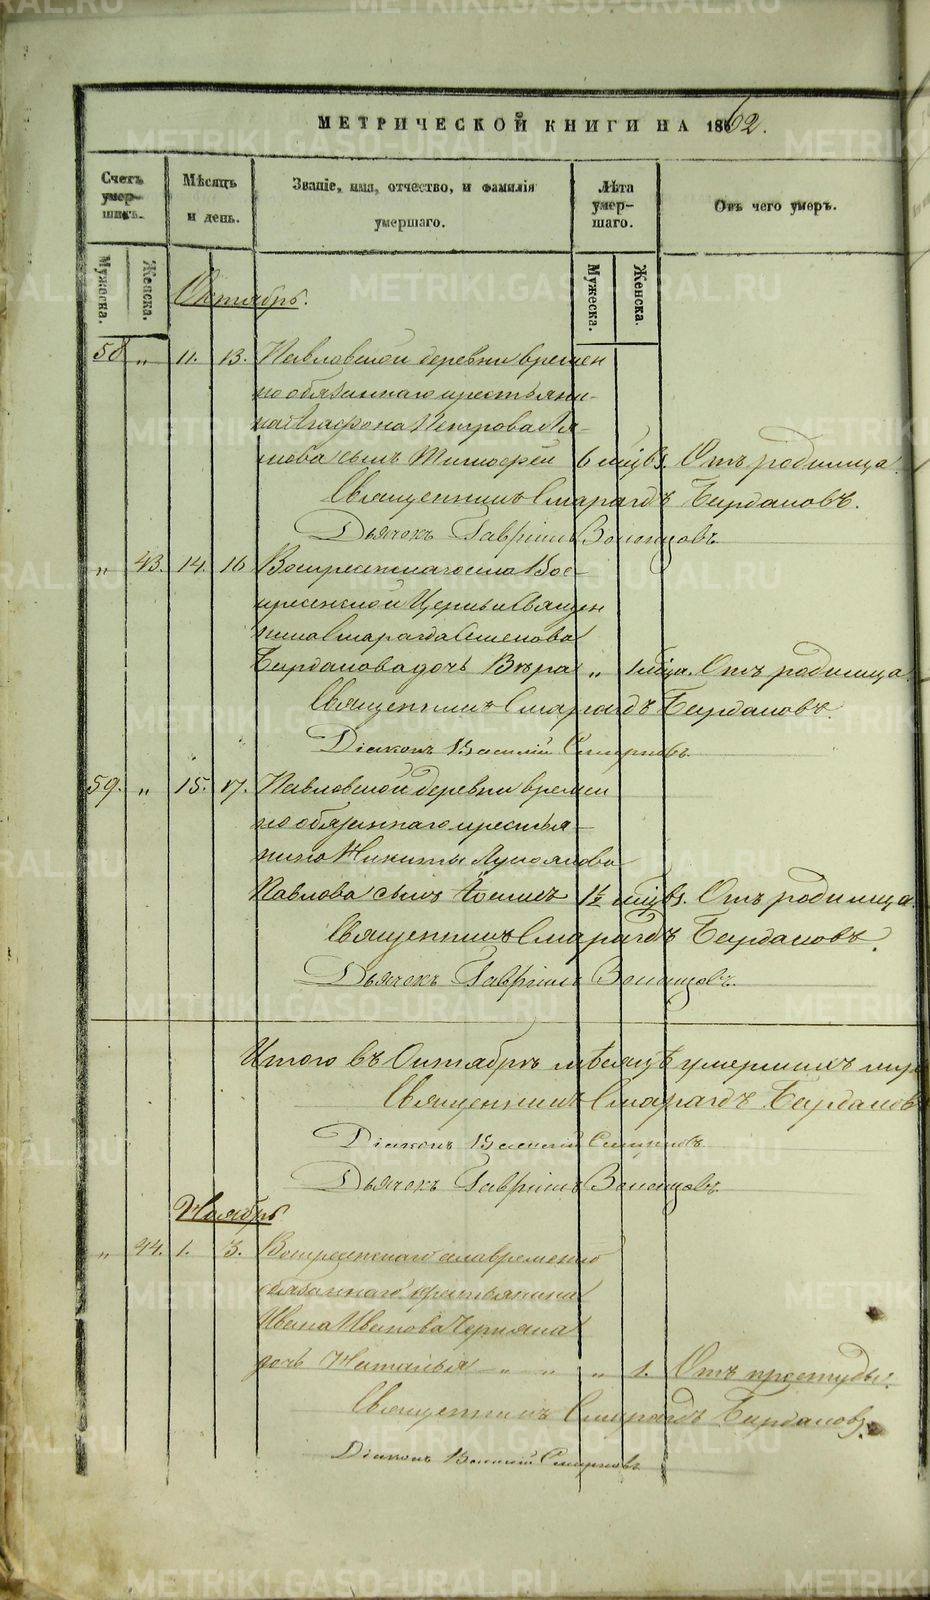 МЕТРИЧЕСКОЙ КНИГИ НА 1862.
Счетъ умер-шихъ.
Мѣсяцъ и день.
Званіе, имя, отчество, и фамилія умершаго.
Лѣта умер-шаго.
Отъ чего умеръ.
Мужеска. Женска.
Мужеска. Женска.
Октябрь.
58 „ 11. 13. Павловской деревни времен
но обязаннаго крестьяни-
на Агафона Петрова
сынъ Тимофей 6 мцвъ. Отъ родимца.
Священникъ Смарагдъ Бирдановъ.
Дьячокъ Гавріилъ
„ 43. 14. 16 Воскресенскаго села Вос-
кресенской Церкви Священ
ника Смарагда Семенова
Бирданова дочь Вѣра „ 1 мца. Отъ родимца.
Священникъ Смарагдъ Бирдановъ.
Діаконъ Василій Смирновъ.
59. „ 15. 17. Павловской деревни времен
но обязаннаго крестья-
нина Никиты
Павлова сынъ 1½ мцвъ. Отъ родимца.
Священникъ Смарагдъ Бирдановъ.
Дьячокъ Гавріилъ
Итого въ Октябрѣ мѣсяцѣ умершихъ
Священникъ Смарагдъ Бирданов
Діаконъ Василій Смирновъ.
Дьячокъ Гавріилъ
Ноябрь
„ 44. 1. 3. Воскресенскаго села временно
обязаннаго крестьянина
Ивана Иванова
дочь Наталья „ „ „ 1. Отъ простуды.
Священникъ Смарагдъ Бирдановъ.
Діаконъ Василій Смирновъ
METRIKI.GASO-URAL.RU